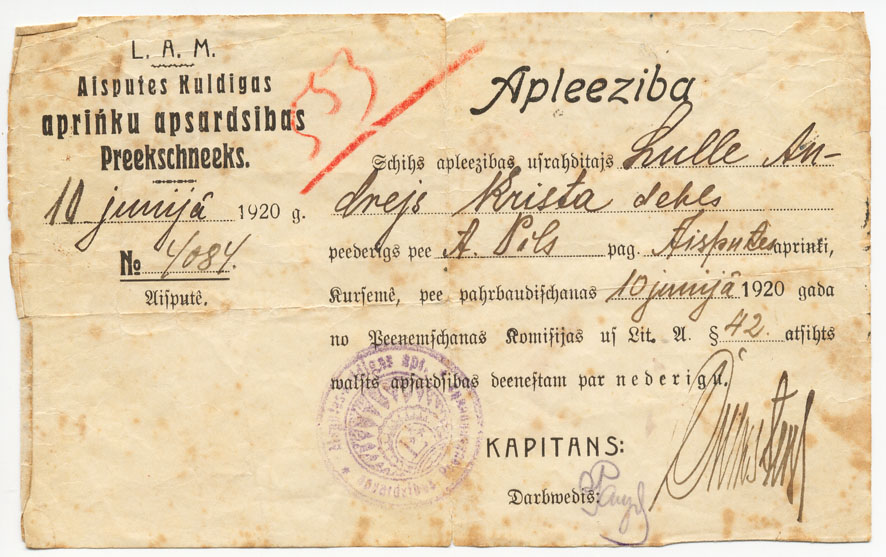 L. A. M.
Aisputes Kuldigas
apriņķu apsardsibas
Preekschneeks.
10 junijâ 1920 g.
№ 4084.
Aisputê.
Apleeziba
Schihs apleezibas usrahditajs Lulle An-
drejs Krista dehls
peederigs pee A. Pils pag. Aisputes aprinķi,
Kursemê, pee pahrbaudischanas 10 junijâ 1920 gada
no Peenemschanas Komisijas us Lit. A. § 42. atsihts
walsts apsardsibas deenestam par nederigu.
KAPITANS:
Darbwedis:
apsardzibas